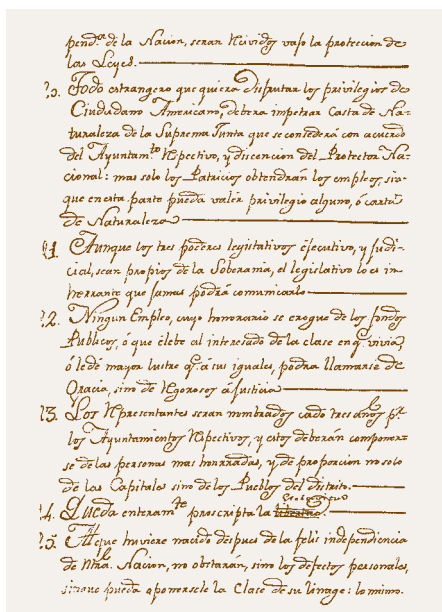 pend.ª de la Nacion, seran Rividos vajo la proteccion de
las Leyes.
20. Todo estrangero que quiera disfrutar los privilegios de
Ciudadano Americano, debera impetrar Carta de Na-
turaleza de la Suprema Junta que se concederá con acuerdo
del Ayuntam.to Rpectivo, y discencion del Protector Na-
cional: mas solo los Patricios obtendrán los empleos, sin
que en esta parte pueda valer privilegio alguno, ó carta
de Naturaleza
21. Aunque los tres poderes legislativos ejecutivo, y Judi-
cial, sean propios de la Soberania, el legislativo lo es in-
herrante que jamas podrá comunicarlo
22. Ningun Empleo, cuyo honorario se erogue de los fondos
Publicos, ó que eleve al interesado de la clase en q.e vivia,
ó le dé mayor lustre q.e á sus iguales, podra llamarse de
Gracia, sino de Rgorosos á Justicia
23. Los Rpresentantes seran nombrados cada tres años p.r
los Ayuntamientos Rpectivos, y estos deberán componer-
se de las personas mas honrradas, y de proporcion no solo
de las Capitales sino de los Pueblos del distrito.
24. Queda enteram.te proscripta la
25. Al que huviere nacido despues de la felis independiencia
de ntra. Nacion, no obstarán, sino los defectos personales,
sin que pueda oponersele la Clase de su linage: lo mismo.